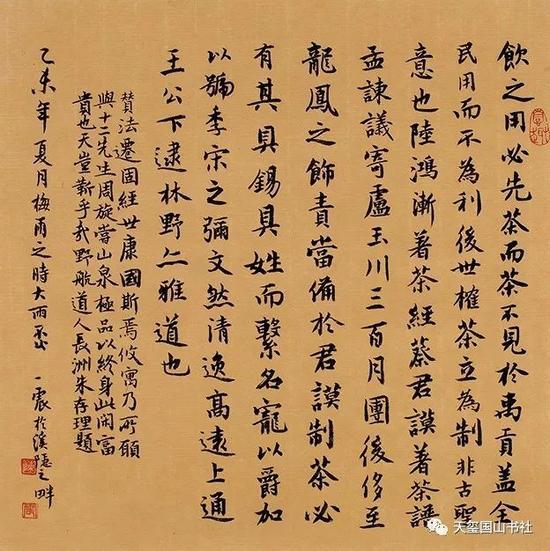 飲之用必先茶而茶不見於禹貢盖全
民用而不為利後世榷茶立為制非古聖
意也陸鴻漸著茶經蔡君謨著茶譜
孟諫議寄盧玉川三百月團後侈至
龍鳳之飾責當備於君謨制茶必
有其具錫具姓而繫名寵以爵加
以號季宋之彌文然清逸高遠上通
王公下逮林野亦雅道也
贊法遷固經世康國斯焉攸寓乃所願
與十二先生周旋嘗山泉極品以終身此閒富
貴也天豈靳乎哉野航道人長洲朱存理題
乙未年夏月梅雨之時大雨不止
一震於溪隱之畔
天玺国山书社